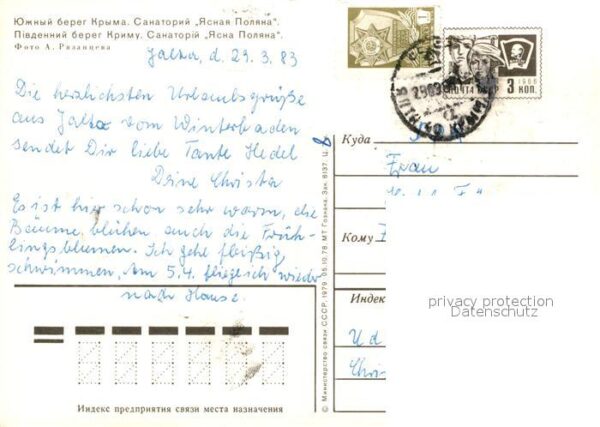 Южный берег Крыма. Санаторий „Ясная Поляна".
Південний берег Криму. Санаторій „Ясна Поляна".
Фото А. Рязанцева
Jalta, d. 29.3.83
Die herzlichsten Urlaubsgrüße
aus Jalta vom Winterbaden
sendet Dir liebe Tante Hedel
Deine Christa
Es ist hier schon sehr warm, die
Bäume blühen auch die Früh-
lingsblumen. Ich gehe fleißig
schwimmen. Am 5.4. fliege ich wieder
nach Hause.
Индекс предприятия связи места назначения
© Министерство связи СССР. 1979. 05.10.78. МТ Гознака. Зак. 8137. Ц.
1
ПОЧТА СССР 3 КОП.
1966
Куда
Frau
Кому
Индекс
privacy protection
Datenschutz